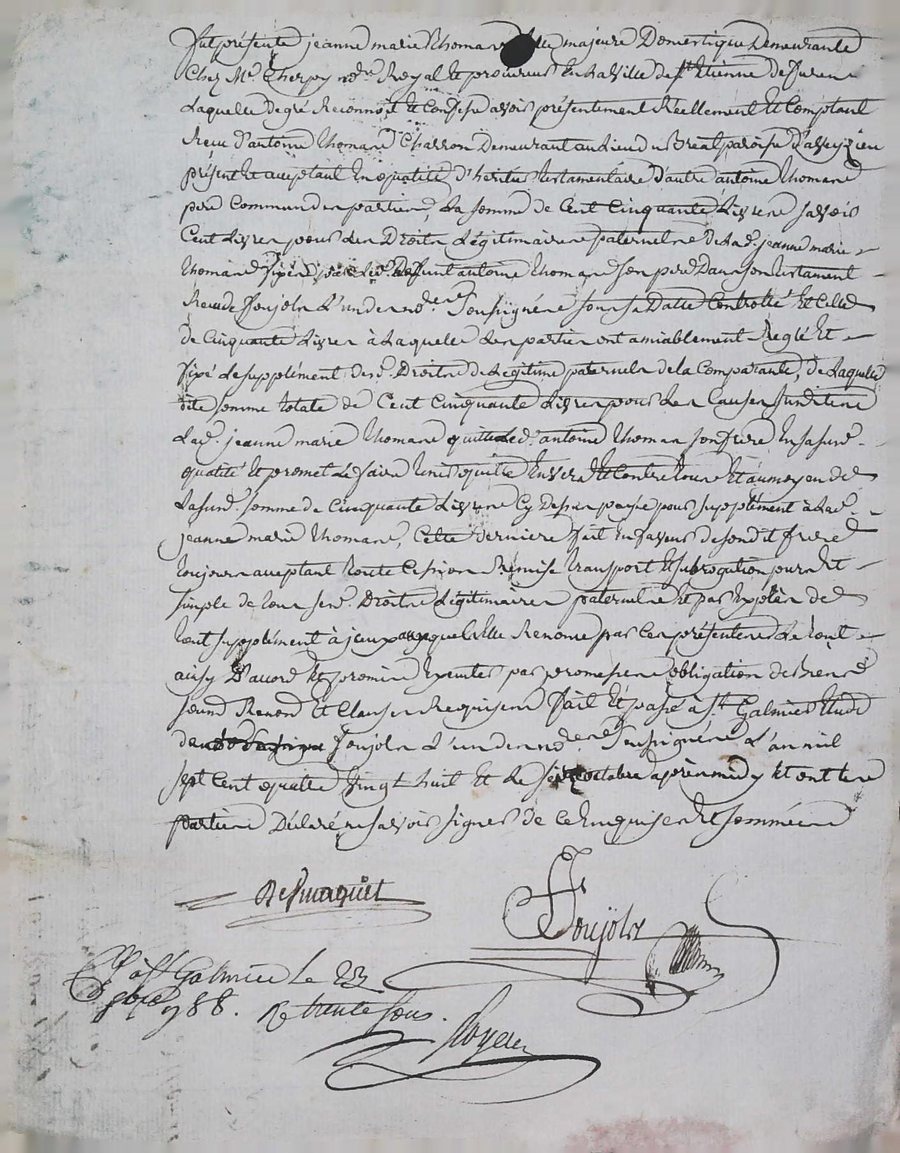 fut présente jeanne marie thomas fille majeure Domestique Demeurante
Chez Mr. Cherpy nore Royal et procureur En la ville de st. Etienne de furens
Laquelle de gré Reconnoit et Confesse avoir présentement Réellement Et Comptant
Reçu d'antoine thomas Charron Demeurant au Lieu du Breat paroisse D'aveyzieu
présent et acceptant En qualité D'héritier testamentaire D'autre antoine thomas
pere Commun des parties, La somme de Cent Cinquante Livres savoir
Cent Livres pour Les Droits Légitimaires paternels de Lad. jeanne marie
thomas fixés par led. Deffunt antoine thomas son pere Dans son testament
Reçu de foujols L'un des nores soussignés sous sa Datte Controllé Et Celle
de Cinquante Livres à Laquelle Les parties ont amiablement Reglé Et
fixé Le supplément desd. Droits de Légitime paternels de la Comparante, de Laquelle
dite somme totale de Cent Cinquante Livres pour Les Causes susdites
Lad. jeanne marie thomas quitte Led. antoine thomas son frère En sa susd.
qualité Et promet Le faire tenir quitte Envers Et Contre tous Et au moyen de
La susd. somme de Cinquante Livres Cy Dessus payée pour supplément à Lad.
jeanne marie thomas, Cette derniere fait En faveur de son dit frere
toujours acceptant toute Cession Remise transport Et subrogation pure Et
simple de tous ses Droits Légitimaires paternels Et par Exprès de
tout supplément à jceux auquel Elle Renonce par Ces présentes Le tout
ainsy D'accord Et promis Executer par promesses obligation de Biens
soumd. Renond. Et Clauses Requises fait Et passé a st. Galmier Etude
de foujols L'un des nores soussignés L'an mil
sept Cent quatre vingt huit Et Le octobre après midy Et ont Les
parties Déclaré ne savoir signer de Ce Enquises Et sommées
foujols
Cé à st. Galmier Le
8bre 1788. Rs trente sous.